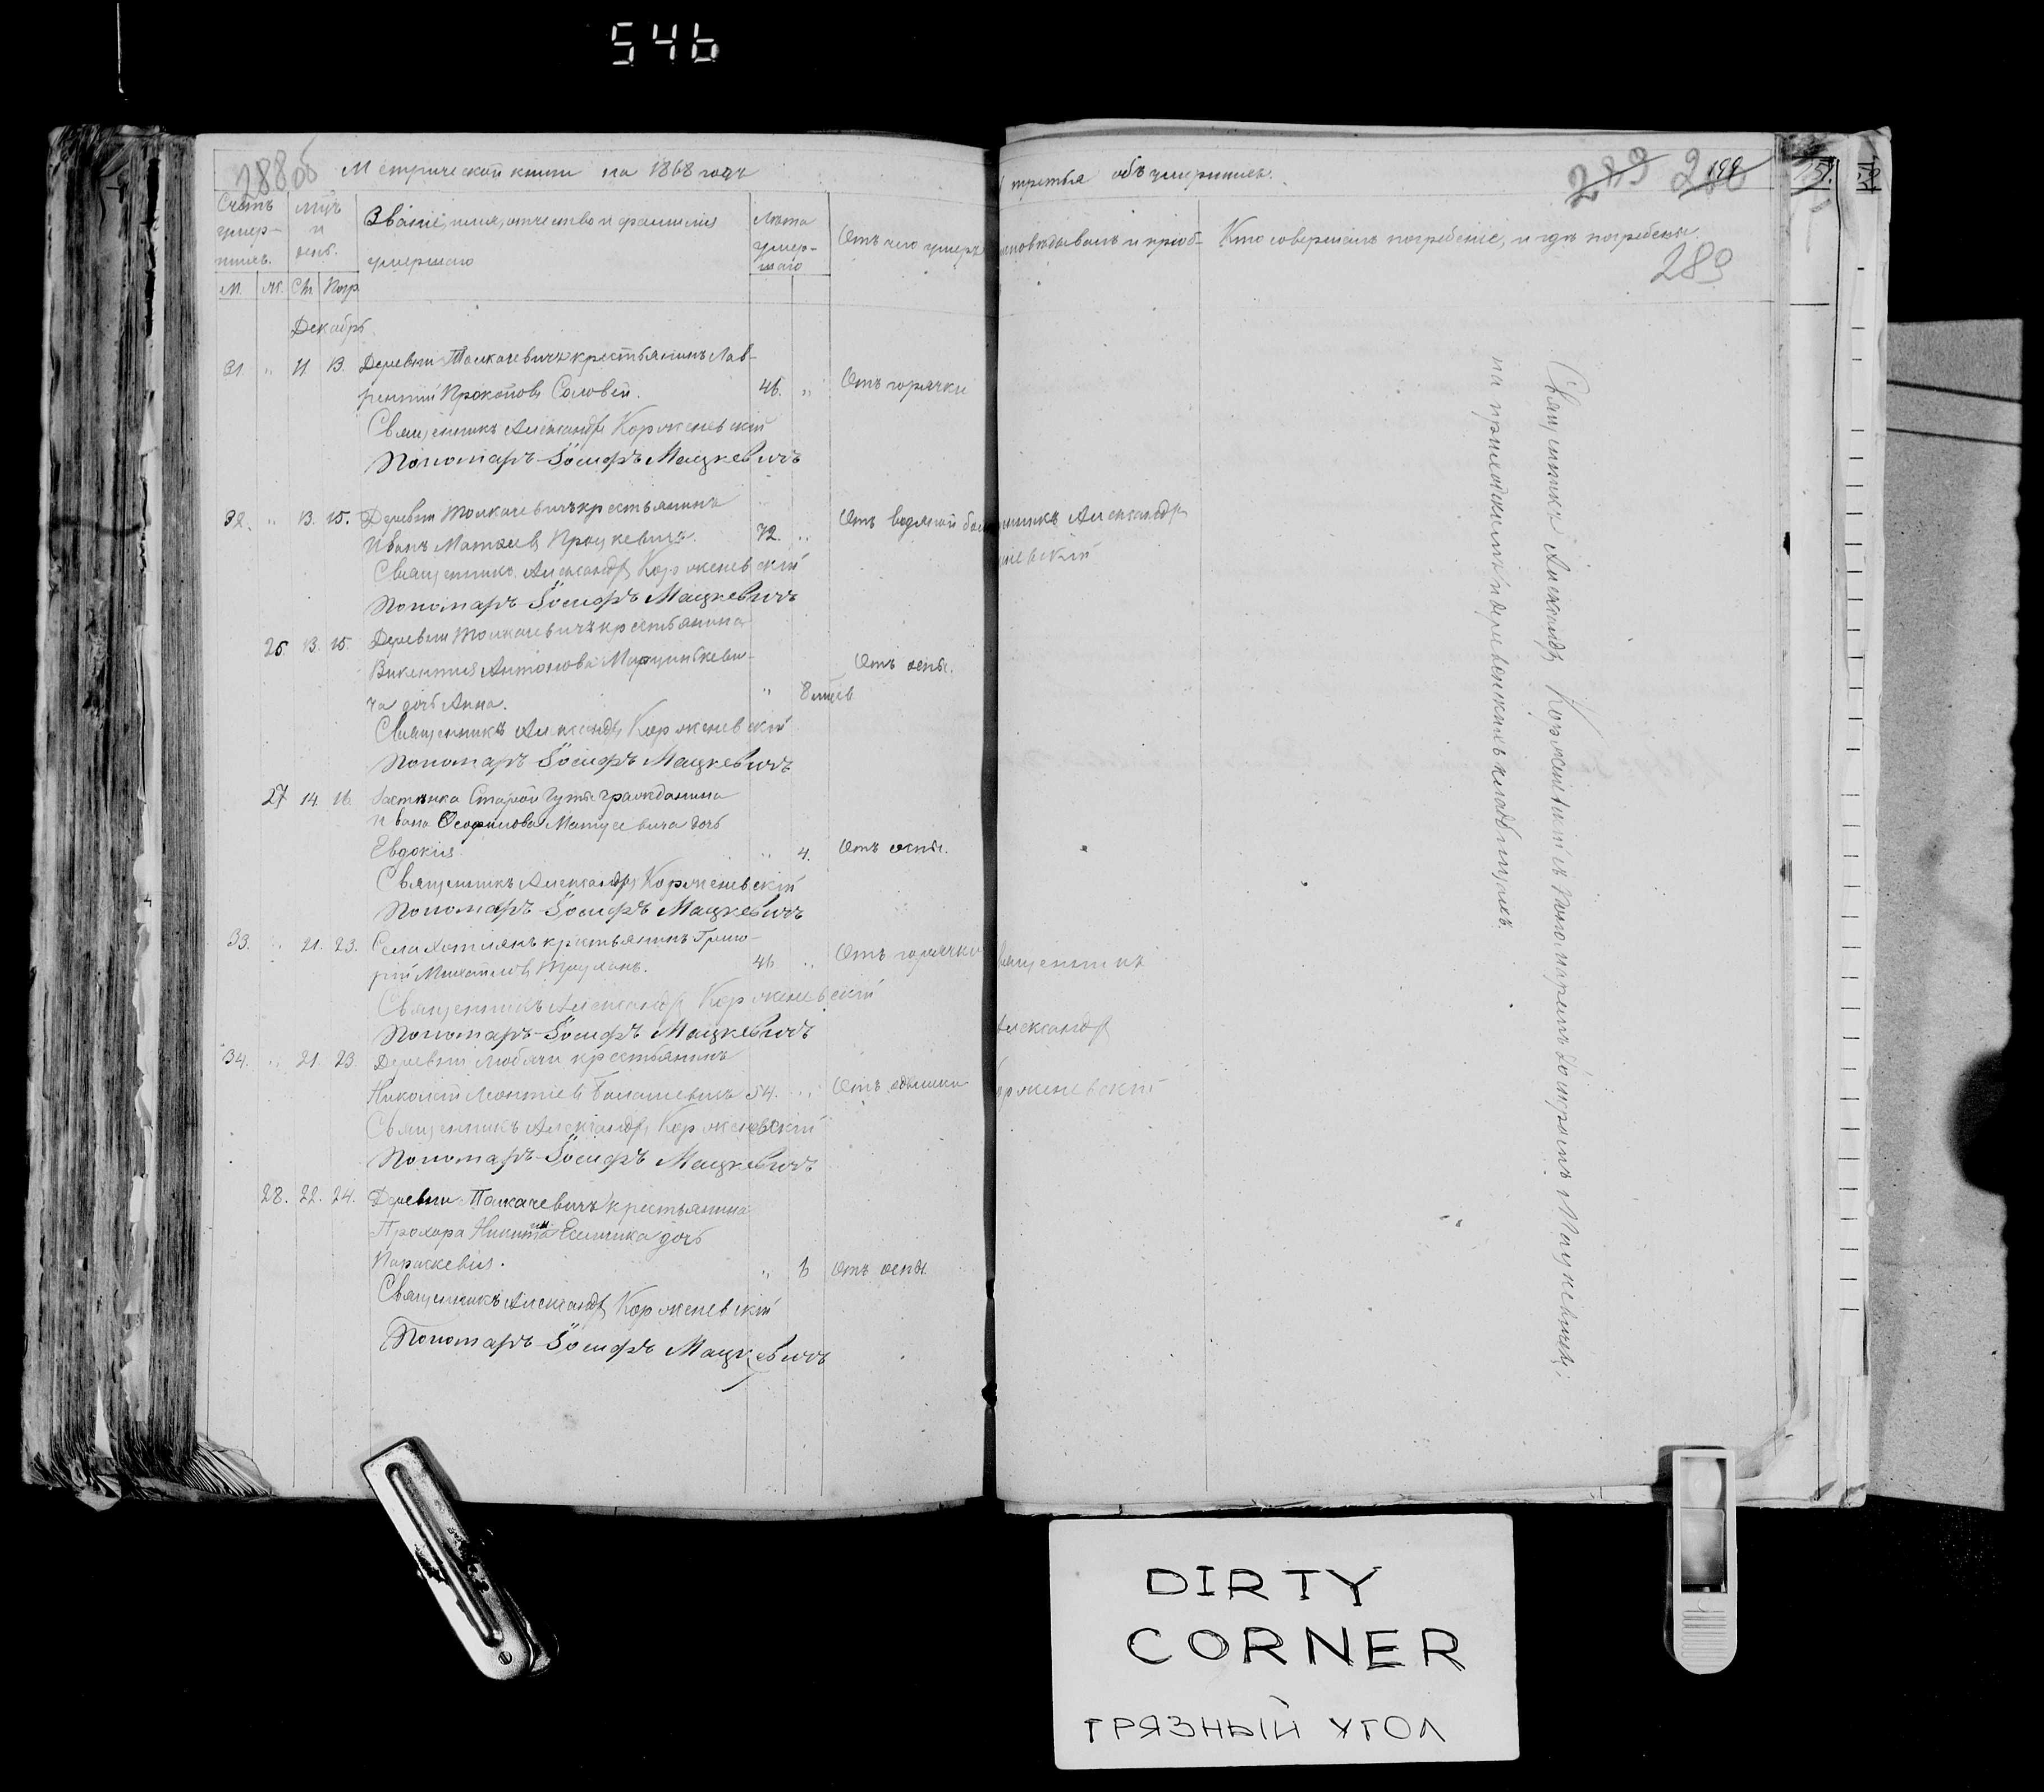 546
288об
Метрической книги на 1868 годъ
Счетъ умер-шихъ.
Мцъ и день.
Званіе, имя, отчество и фамилія умершаго
Лѣта умер-шаго
Отъ чего умеръ
М. Ж. См. Погр
Декабрь.
31 " 11. 13. Деревни Толкачевичъ крестьянинъ Лав-
рентій Прокоповъ Соловей. 46. " Отъ горячки
Священникъ Александръ Корженевскій
Пономарь Іосифъ Мацкевичъ
32. " 13. 15. Деревни Толкачевичъ крестьянинъ
Иванъ Матѳеевъ Процкевичъ. 72. " Отъ водяной
Священникъ Александръ Корженевскій
Пономарь Іосифъ Мацкевичъ
26. 13. 15. Деревни Толкачевичъ крестьянина
Викентія Антонова Марцинкеви-
ча дочь Анна. " 8 мцев Отъ оспы.
Священникъ Александръ Корженевскій
Пономарь Іосифъ Мацкевичъ
27 14. 16. Застѣнка Старой Гуты гражданина
Ивана Ѳеофилова Матусевича дочь
Евдокія " 4. Отъ оспы.
Священникъ Александръ Корженевскій
Пономарь Іосифъ Мацкевичъ
33. " 21. 23. Села Хотлянъ крестьянинъ Григо-
рій Михайловъ 46 " Отъ горячки
Священникъ Александръ Корженевскій
Пономарь Іосифъ Мацкевичъ
34. " 21. 23. Деревни Любячи крестьянинъ
Николай Леонтіевъ 54. " Отъ одышки
Священникъ Александръ Корженевскій
Пономарь Іосифъ Мацкевичъ
28. 22. 24. Деревни Толкачевичъ крестьянина
Прохора Никитина дочь
Параскевія. " 6 Отъ оспы.
Священникъ Александръ Корженевскій
Пономарь Іосифъ Мацкевичъ
третья объ умершихъ.
289
199
289
исповѣдывалъ и пріоб-
Кто совершалъ погребеніе, и гдѣ погребены.
Александръ
Александръ
Священникъ Александръ Корженевскій съ Пономаремъ Іосифомъ Мацкевичемъ,
на приходскихъ и деревенскихъ кладбищахъ.
DIRTY
CORNER
ГРЯЗНЫЙ УГОЛ